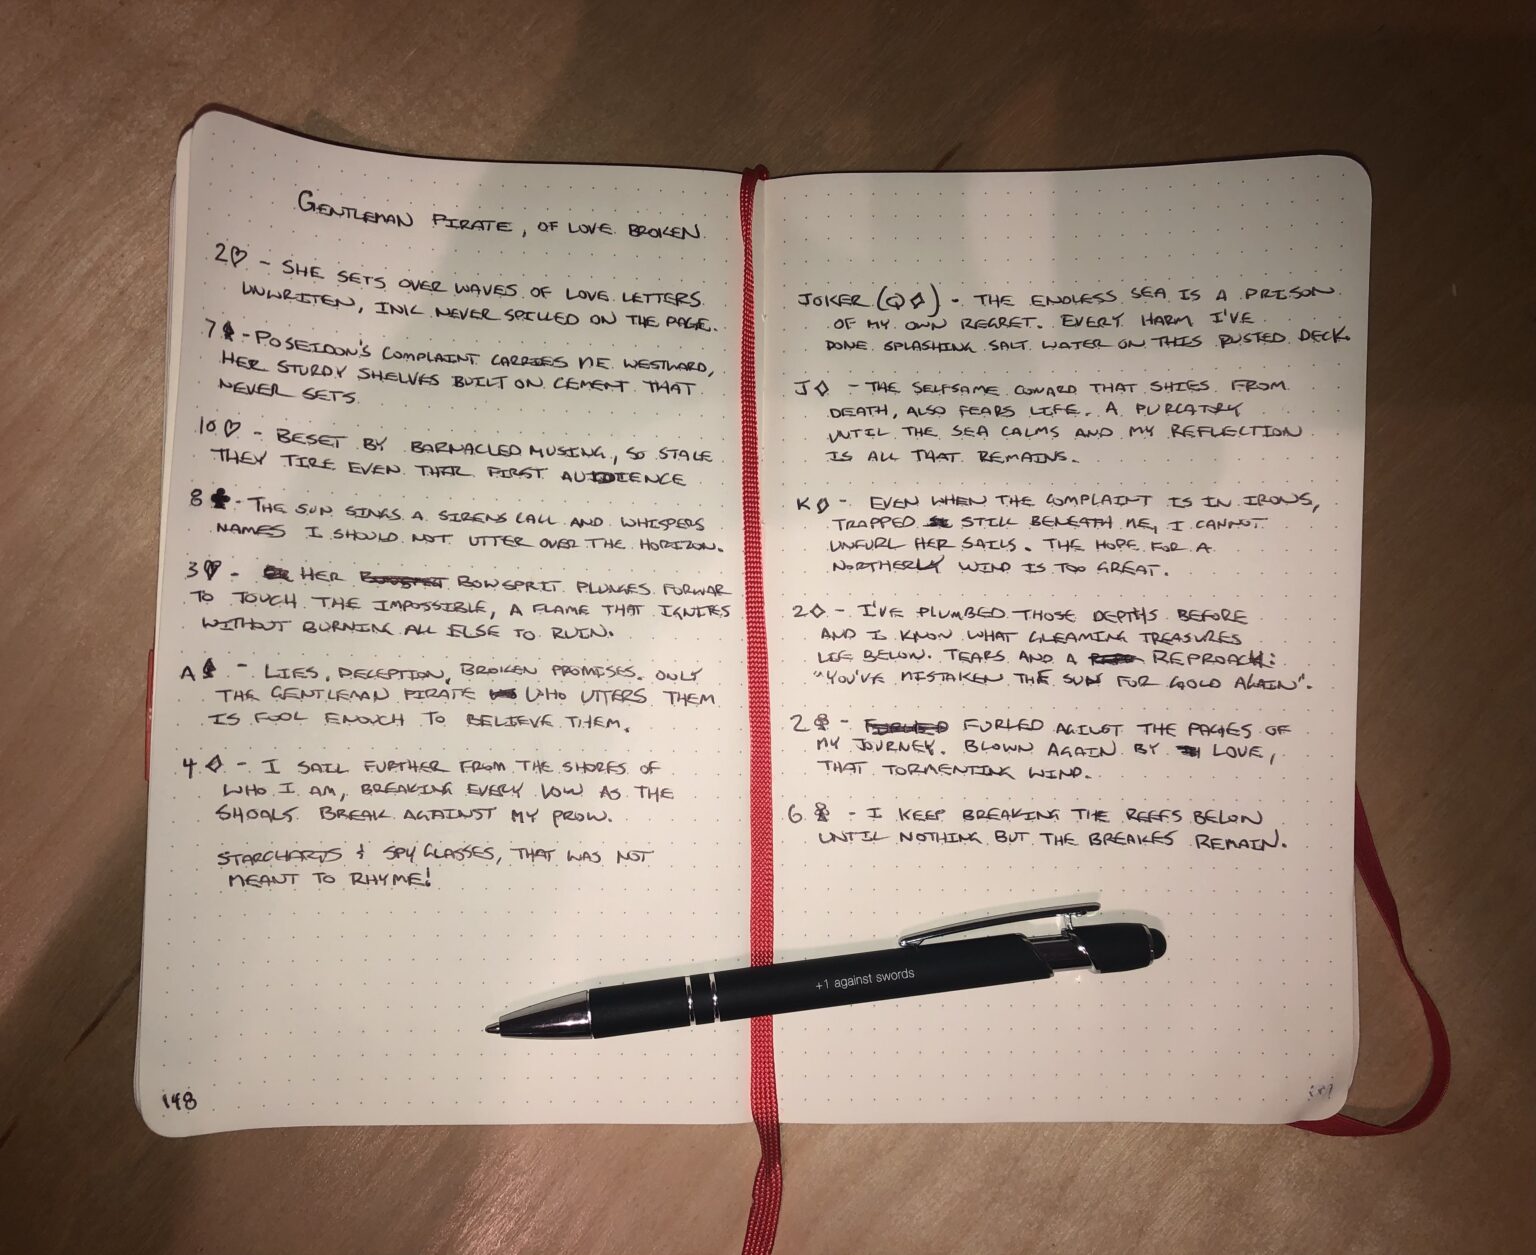 GENTLEMAN PIRATE, OF LOVE BROKEN
2♡ - SHE SETS OVER WAVES OF LOVE LETTERS
UNWRITEN, INK NEVER SPILLED ON THE PAGE.
7♠ - POSEIDON'S COMPLAINT CARRIES ME WESTWARD,
HER STURDY SHELVES BUILT ON CEMENT THAT
NEVER SETS
10♡ - BESET BY BARNACLED MUSING, SO STALE
THEY TIRE EVEN THER FIRST AUDIENCE
8♣ - THE SUN SINGS A SIRENS CALL AND WHISPERS
NAMES I SHOULD NOT UTTER OVER THE HORIZON.
3♡ - HER BOWSPRIT PLUNGES FORWAR
TO TOUCH THE IMPOSSIBLE, A FLAME THAT IGNITES
WITHOUT BURNING ALL ELSE TO RUIN.
A♠ - LIES, DECEPTION, BROKEN PROMISES. ONLY
THE GENTLEMAN PIRATE WHO UTTERS THEM
IS FOOL ENOUGH TO BELIEVE THEM.
4♢ - I SAIL FURTHER FROM THE SHORES OF
WHO I AM, BREAKING EVERY VOW AS THE
SHOALS BREAK AGAINST MY PROW.
STARCHARTS & SPYGLASSES, THAT WAS NOT
MEANT TO RHYME!
148
JOKER (Q♢) - THE ENDLESS SEA IS A PRISON
OF MY OWN REGRET. EVERY HARM I'VE
DONE SPLASHING SALT WATER ON THIS RUSTED DECK.
J♢ - THE SELFSAME COWARD THAT SHIES FROM
DEATH, ALSO FEARS LIFE. A PURGATRY
UNTIL THE SEA CALMS AND MY REFLECTION
IS ALL THAT REMAINS.
K♢ - EVEN WHEN THE COMPLAINT IS IN IRONS,
TRAPPED STILL BENEATH ME, I CANNOT
UNFURL HER SAILS. THE HOPE FOR A
NORTHERLY WIND IS TOO GREAT.
2♢ - I'VE PLUMBED THOSE DEPTHS BEFORE
AND I KNOW WHAT GLEAMING TREASURES
LIE BELOW. TEARS AND A REPROACH:
"YOU'VE MISTAKEN THE SUN FOR GOLD AGAIN".
2♧ - FURLED THE PAGES OF
MY JOURNEY. BLOWN AGAIN BY LOVE,
THAT TORMENTING WIND.
6♧ - I KEEP BREAKING THE REEFS BELOW
UNTIL NOTHING BUT THE BREAKES REMAIN.
+1 against swords